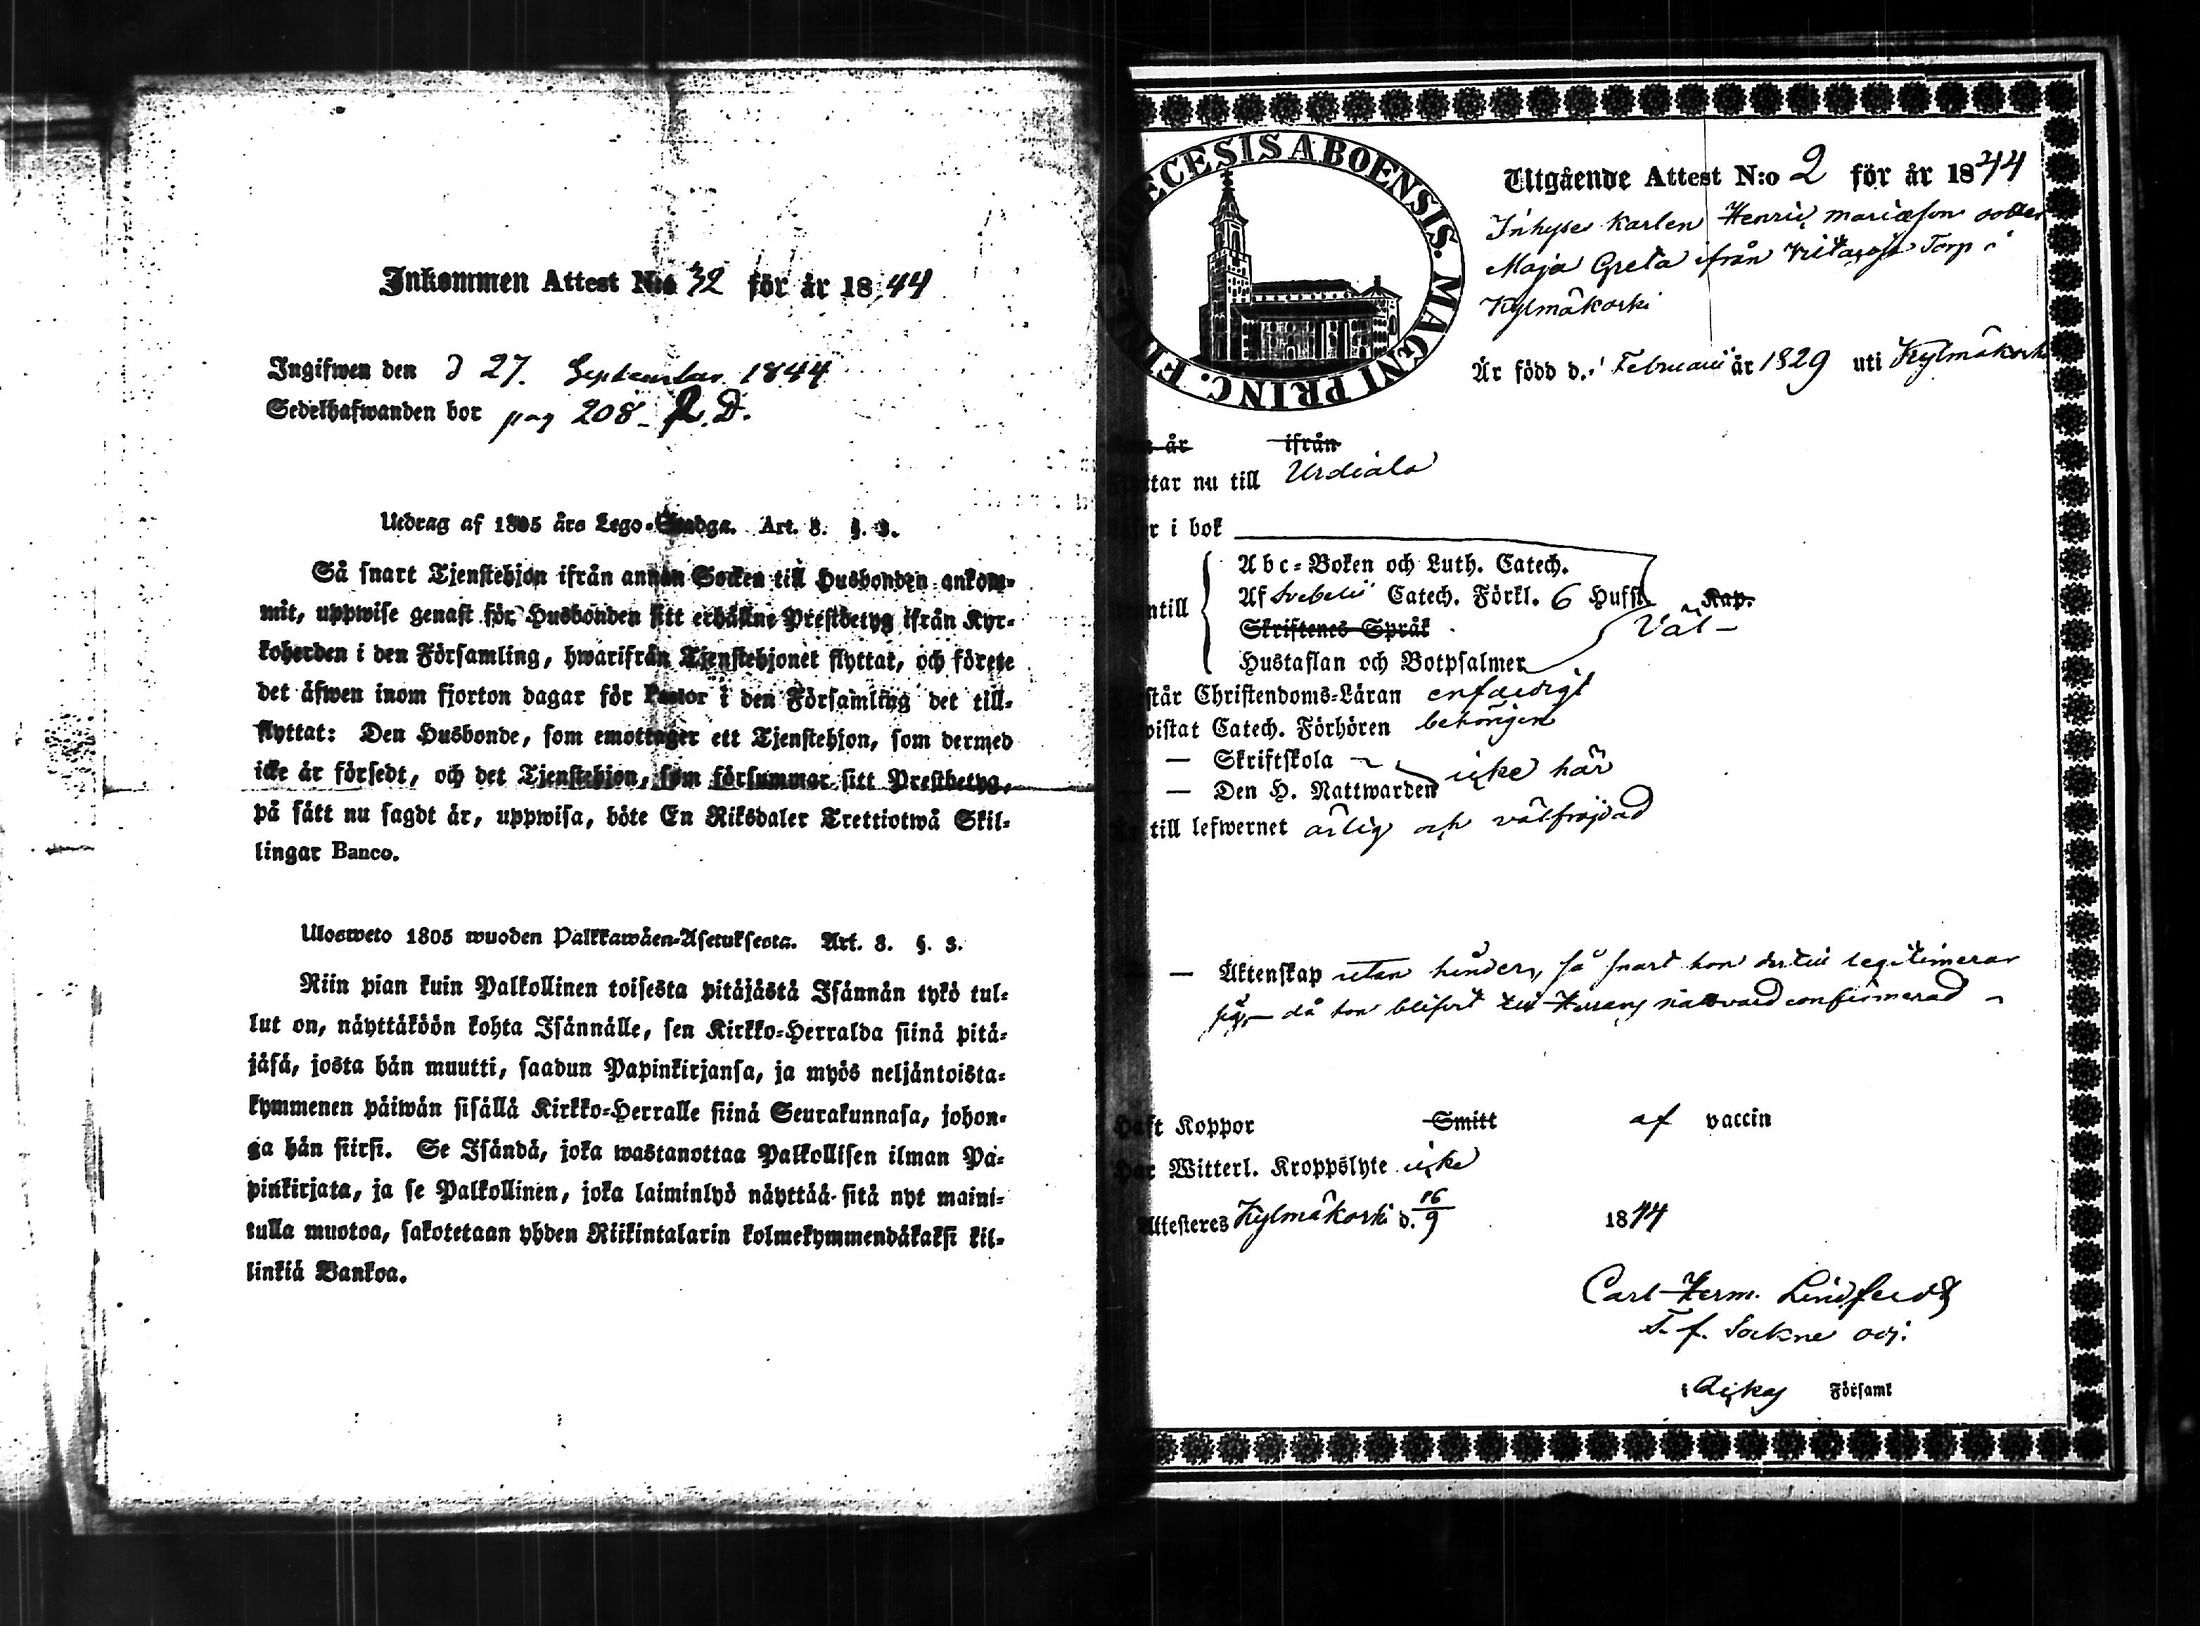 Inkommen Attest N:o 32 för år 1844
Ingifwen den d 27. September 1844
Sedelhafwanden bor pag 208 R. D.
Utdrag af 1805 års Lego-Stadga. Art. 8. §. 3.
Så snart Tjenstehjon ifrån annan Socken till Husbonden ankom-
mit, uppwise genast för Husbonden sitt erhållne Prestbetyg ifrån Kyr-
koherden i den Församling, hwarifrån Tjenstehjonet flyttat, och förete
det äfwen inom fjorton dagar för Pastor i den Församling det till-
flyttat: Den Husbonde, som emottager ett Tjenstehjon, som dermed
icke är försedt, och det Tjenstehjon, som försummar sitt Prestbetyg,
på sätt nu sagdt är, uppwisa, böte En Riksdaler Trettiotwå Skil-
lingar Banco.
Ulosweto 1805 wuoden Palkkawäen-Asetuksesta. Art. 8. §. 3.
Niin pian kuin Palkollinen toisesta pitäjästä Isännän tykö tul-
lut on, näyttäköön kohta Isännälle, sen Kirkko-Herralda siinä pitä-
jäsä, josta hän muutti, saadun Papinkirjansa, ja myös neljäntoista-
kymmenen päiwän sisällä Kirkko-Herralle siinä Seurakunnasa, johon-
ga hän siirsi. Se Isändä, joka wastanottaa Palkollisen ilman Pa-
pinkirjata, ja se Palkollinen, joka laiminlyö näyttää sitä nyt maini-
tulla muotoa, sakotetaan yhden Riikintalarin kolmekymmendäkaksi kil-
linkiä Bankoa.
DIOECESIS ABOENSIS. MAGNI PRINC.
Utgående Attest N:o 2 för år 1844
Inhyses karlen Henric dotter
Maja Greta ifrån Torp i
Kylmäkoski
Är född d. 1 Februarii år 1829 uti Kylmäkoski
år ifrån
nu till Urdiala
i bok
Abc-Boken och Luth. Catech.
Af Svebelii Catech. Förkl. 6 Hufst. Kap.
Skriftenes Språk
Väl
Hustaflan och Botpsalmer
Christendoms-Läran enfaldigt
Catech. Förhören behörigen
— Skriftskola
icke här
— Den H. Nattwarden
till lefwernet ärlig och välfrejdad
— Äktenskap utan hinder, så snart hon dertill legitimerar
sig, då hon blifvit till Herrans nattvard confirmerad
Haft Koppor Smitt af vaccin
Har Witterl. Kroppslyte icke
Attesteres Kylmäkoski d. 16/9 1844
Carl Herm.
T. f. Sockne adj.
i Församl